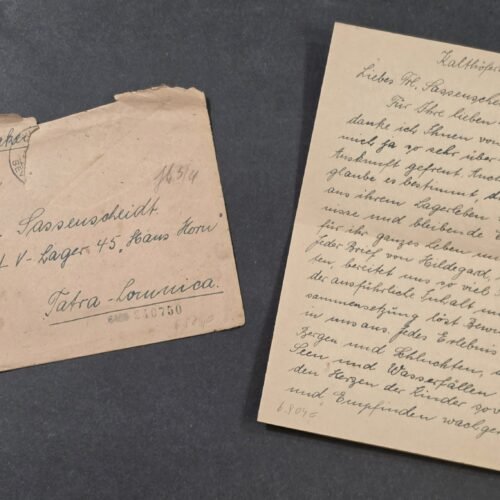 Sassenscheidt
V-Lager 45 „Hans Horn"
Tatra-Lomnica.
240750
Kalthöfer
Liebes Frl. Sassenschei
Für Ihre lieben
danke ich Ihnen vo
mich ja so sehr über
Auskunft gefreut. Auch
glaube es bestimmt, d
aus ihrem Lagerleben
nisse und bleibende
für ihr ganzes Leben mi
Jeder Brief von Hildegard,
ten, bereitet uns so viel
der ausführliche Inhalt u
sammensetzung löst Bewu
in uns aus. Jedes Erlebnis
Bergen und Schluchten,
Seen und Wasserfällen
den Herzen der Kinder sov
und Empfinden wachger